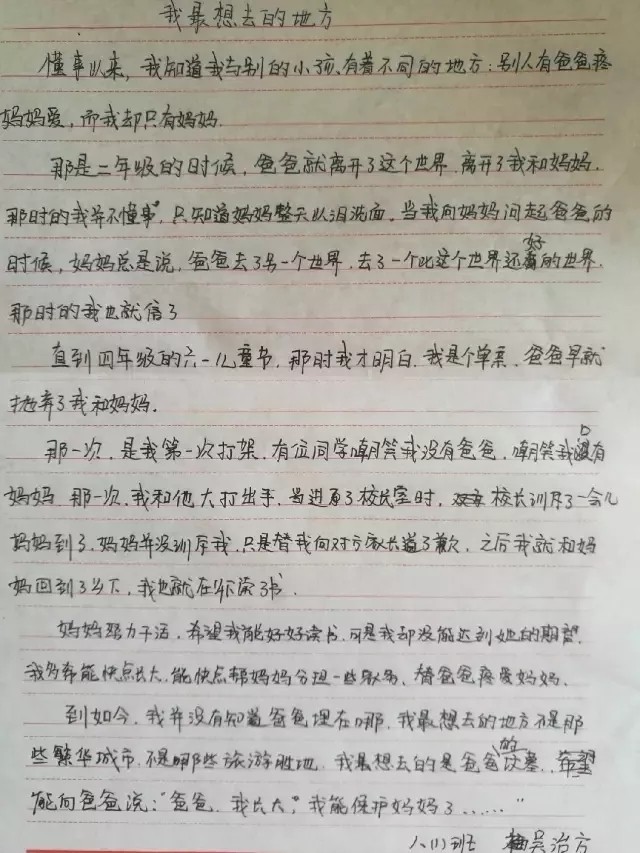 我最想去的地方
懂事以来,我知道我与别的小孩有着不同的地方:别人有爸爸疼
妈妈爱,而我却只有妈妈.
那是二年级的时候,爸爸就离开了这个世界.离开了我和妈妈.
那时的我并不懂事,只知道妈妈整天以泪洗面.当我向妈妈问起爸爸的
时候,妈妈总是说,爸爸去了另一个世界.去了一个比这个世界还好的世界.
那时的我也就信了
直到四年级的六一儿童节.那时我才明白.我是个单亲.爸爸早就
抛弃了我和妈妈.
那一次,是我第一次打架.有位同学嘲笑我没有爸爸,嘲笑我只有
妈妈 那一次.我和他大打出手.当进了校长室时,校长训斥了一会儿
妈妈到了.妈妈并没训斥我.只是替我向对方家长道了歉.之后我就和妈
妈回到了乡下,我也就在乡下读了书.
妈妈努力干活,希望我能好好读书.可是我却没能达到她的期望.
我多希能快点长大.能快点帮妈妈分担一些家务、替爸爸疼爱妈妈.
到如今.我并没有知道爸爸埋在哪.我最想去的地方不是那
些繁华城市.不是哪那些旅游胜地.我最想去的是爸爸的坟墓.希望
能向爸爸说:"爸爸.我长大了.我能保护妈妈了......"
八(1)班 吴治方